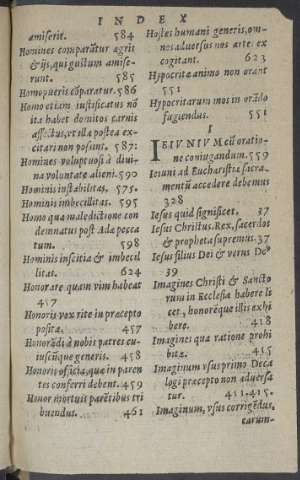 INDEX
amiserit. 584
Homines comparãtur agrit
& ijs, qui gustum amise-
runt. 585
Homo pueris cõparatur. 586
Homo etiam iustificatus nõ
ita habet domitos carnis
affectus, vt illa postea ex-
citari non possint. 587:
Homines voluptuosi à diui-
na voluntate alieni. 590
Hominis instabilitas. 575.
Hominis imbecillitas. 595
Homo qua maledictione con
demnatus post Adæ pecca
tum. 598
Hominis inscitia & imbecil
litas. 624
Honorare quam vim habeat
457
Honoris vox rite in præcepto
posita. 457
Honorãdi à nobis patres cu-
iuscũque generis. 458
Honoris officia, quæ in paren
tes conferri debent. 459
Honor mortuis parẽtibus tri
buendus. 461
Hostes humani generis, om-
nes aduersus nos artes ex
cogitant. 623
Hypocritæ animo non orant
551
Hypocritarum mos in orãdo
fugiendus. 551
I
IEIVNIVM cũ oratio-
ne coniugandum. 559
Ieiuni ad Eucharistiæ sacra-
mentũ accedere debemus
328
Iesus quid significet. 37
Iesus Christus. Rex, sacerdos
& propheta supremus. 37
Iesus filius Dei & verus De⁹
39
Imagines Christi & Sancto
rum in Ecclesia habere li
cet, honoréque illis exhi
bere. 418
Imagines qua ratione prohi
bitæ. 415
Imaginum vsus primo Deca
logi præcepto non aduersa
tur. 411. 415.
Imaginum, vsus corrigẽdus,
earum-